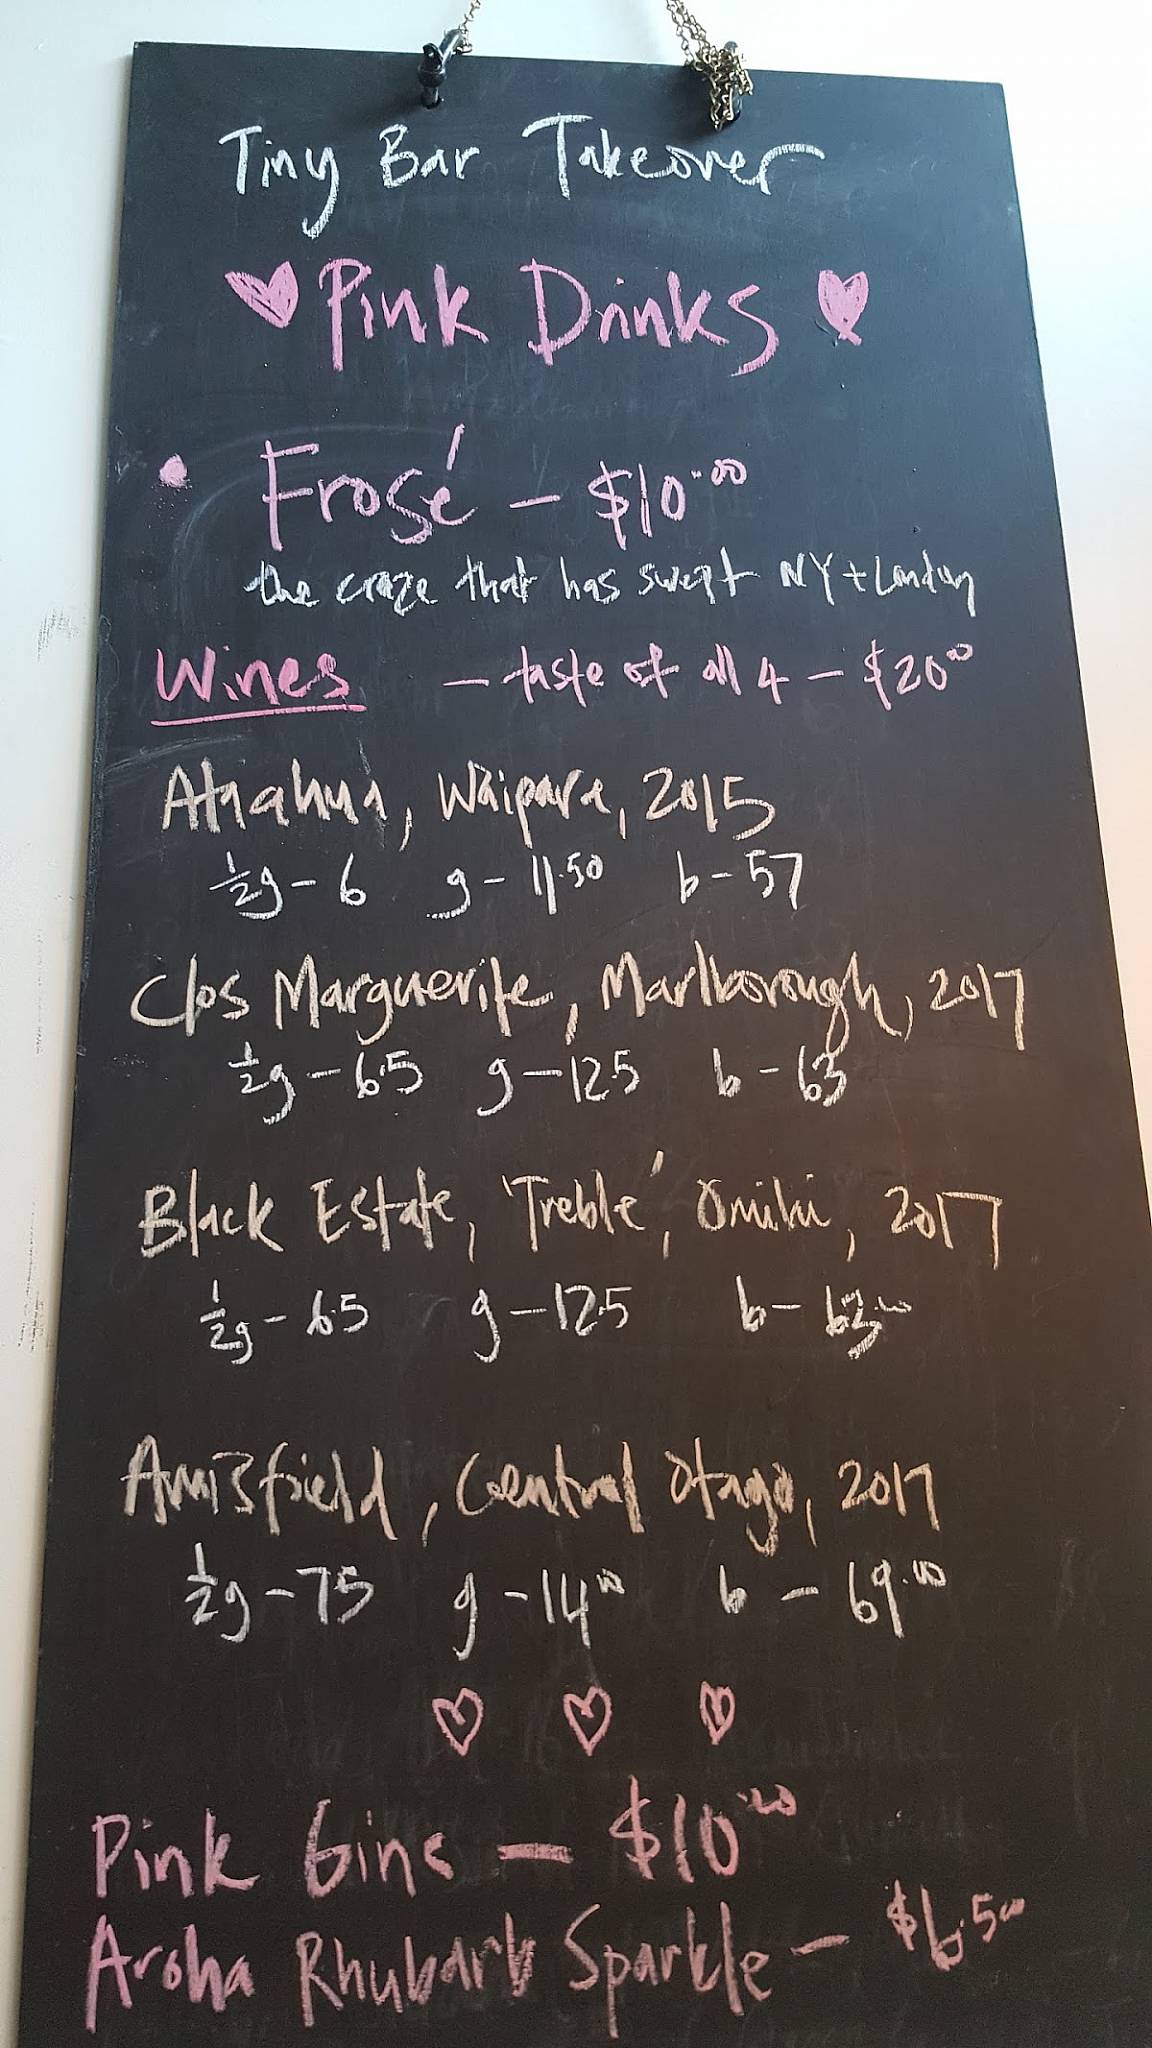 Tiny Bar Takeover
Pink Drinks
Frosé - $10.00
the craze that has swept NY + London
Wines - taste of all 4 - $20.00
Atahua, Waipara, 2015
½g - 6 g - 11.50 b - 57
Clos Marguerite, Marlborough, 2017
½g - 6.5 g - 12.5 b - 63
Black Estate, 'Treble', Omihi, 2017
½g - 6.5 g - 12.5 b - 63.00
Amisfield, Central Otago, 2017
½g - 7.5 g - 14.00 b - 69.00
Pink Gins - $10.00
Aroha Rhubarb Sparkle - $6.50